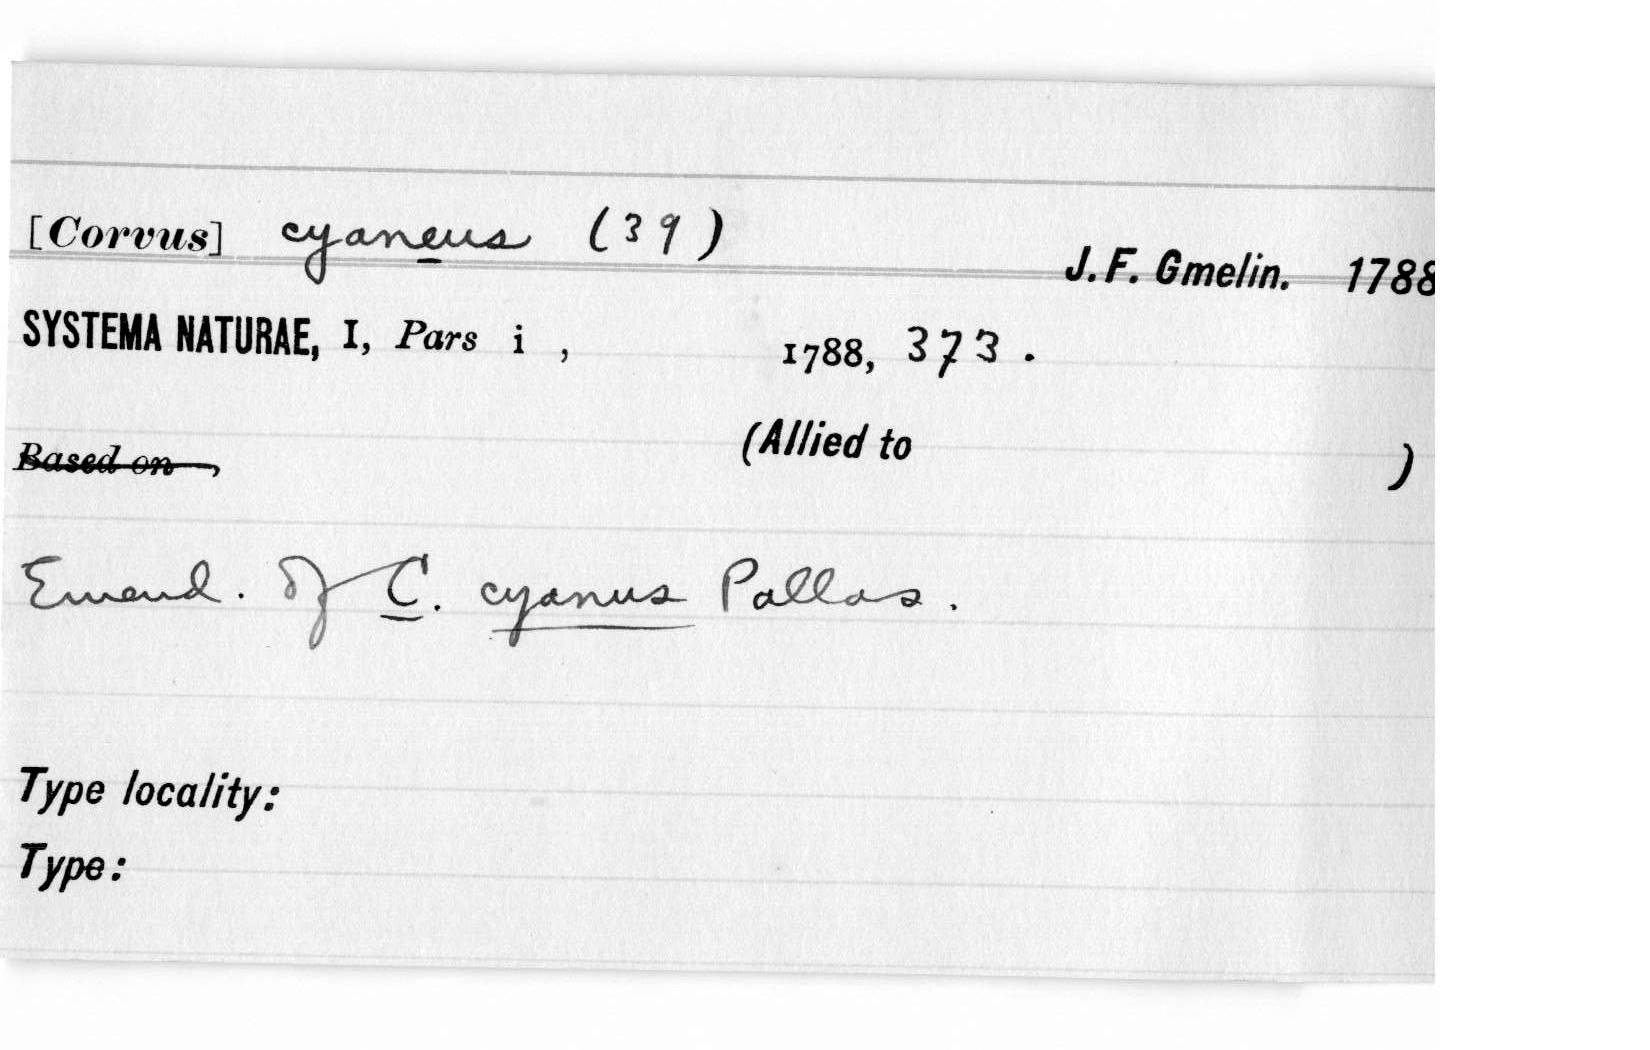 [Corvus] cyaneus (39)
J. F. Gmelin. 1788
SYSTEMA NATURAE, I, Pars i , 1788, 373 .
Based on , (Allied to )
Emend. of C. cyanus Pallas .
Type locality:
Type: